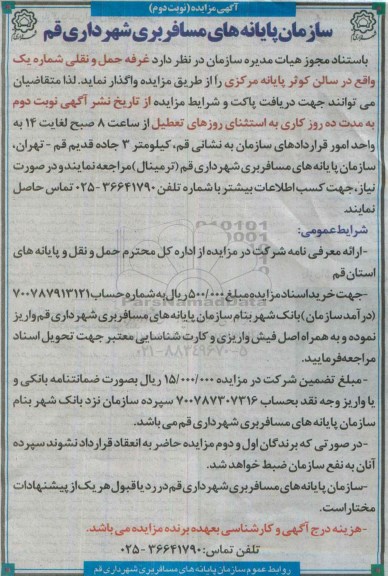 آگهی مزایده (نوبت دوم)
سازمان پایانه های مسافربری شهرداری قم
باستناد مجوز هیات مدیره سازمان در نظر دارد غرفه حمل و نقلی شماره یک
واقع در سالن کوثر پایانه مرکزی را از طریق مزایده واگذار نماید. لذا متقاضیان
می توانند جهت دریافت پاکت و شرایط مزایده از تاریخ نشر آگهی نوبت دوم
به مدت ده روز کاری به استثنای روزهای تعطیل از ساعت ۸ صبح لغایت ۱۴ به
واحد امور قراردادهای سازمان به نشانی قم، کیلومتر ۳ جاده قدیم قم - تهران،
سازمان پایانه های مسافربری شهرداری قم (ترمینال) مراجعه نمایند و در صورت
نیاز، جهت کسب اطلاعات بیشتر با شماره تلفن ۳۶۶۴۱۷۹۰-۰۲۵ تماس حاصل
نمایند.
شرایط عمومی:
-ارائه معرفی نامه شرکت در مزایده از اداره کل محترم حمل و نقل و پایانه های
استان قم
-جهت خرید اسناد مزایده مبلغ ۵۰۰/۰۰۰ ریال به شماره حساب ۷۰۰۷۸۷۹۱۳۱۲۱
(درآمد سازمان) بانک شهر بنام سازمان پایانه های مسافربری شهرداری قم واریز
نموده و به همراه اصل فیش واریزی و کارت شناسایی معتبر جهت تحویل اسناد
مراجعه فرمایید.
-مبلغ تضمین شرکت در مزایده ۱۵/۰۰۰/۰۰۰ ریال بصورت ضمانتنامه بانکی و
یا واریز وجه نقد بحساب ۷۰۰۷۸۷۳۰۷۳۱۶ سپرده سازمان نزد بانک شهر بنام
سازمان پایانه های مسافربری شهرداری قم می باشد.
-در صورتی که برندگان اول و دوم مزایده حاضر به انعقاد قرارداد نشوند سپرده
آنان به نفع سازمان ضبط خواهد شد.
-سازمان پایانه های مسافربری شهرداری قم در رد یا قبول هر یک از پیشنهادات
مختار است.
-هزینه درج آگهی و کارشناسی بعهده برنده مزایده می باشد.
تلفن تماس: ۳۶۶۴۱۷۹۰-۰۲۵
روابط عموم سازمان پایانه های مسافربری شهرداری قم
ParsNamadData
۰۲۱-۸۸۳۴۹۶۷۰-۵